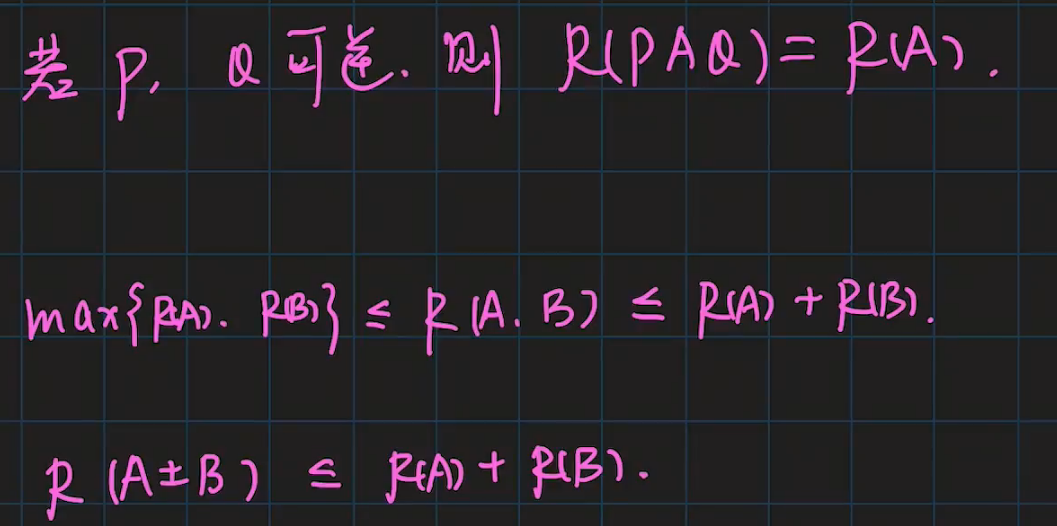 若 P, Q 可逆. 则 R(PAQ) = R(A).
max{R(A). R(B)} ≤ R(A. B) ≤ R(A) + R(B).
R (A±B) ≤ R(A) + R(B).